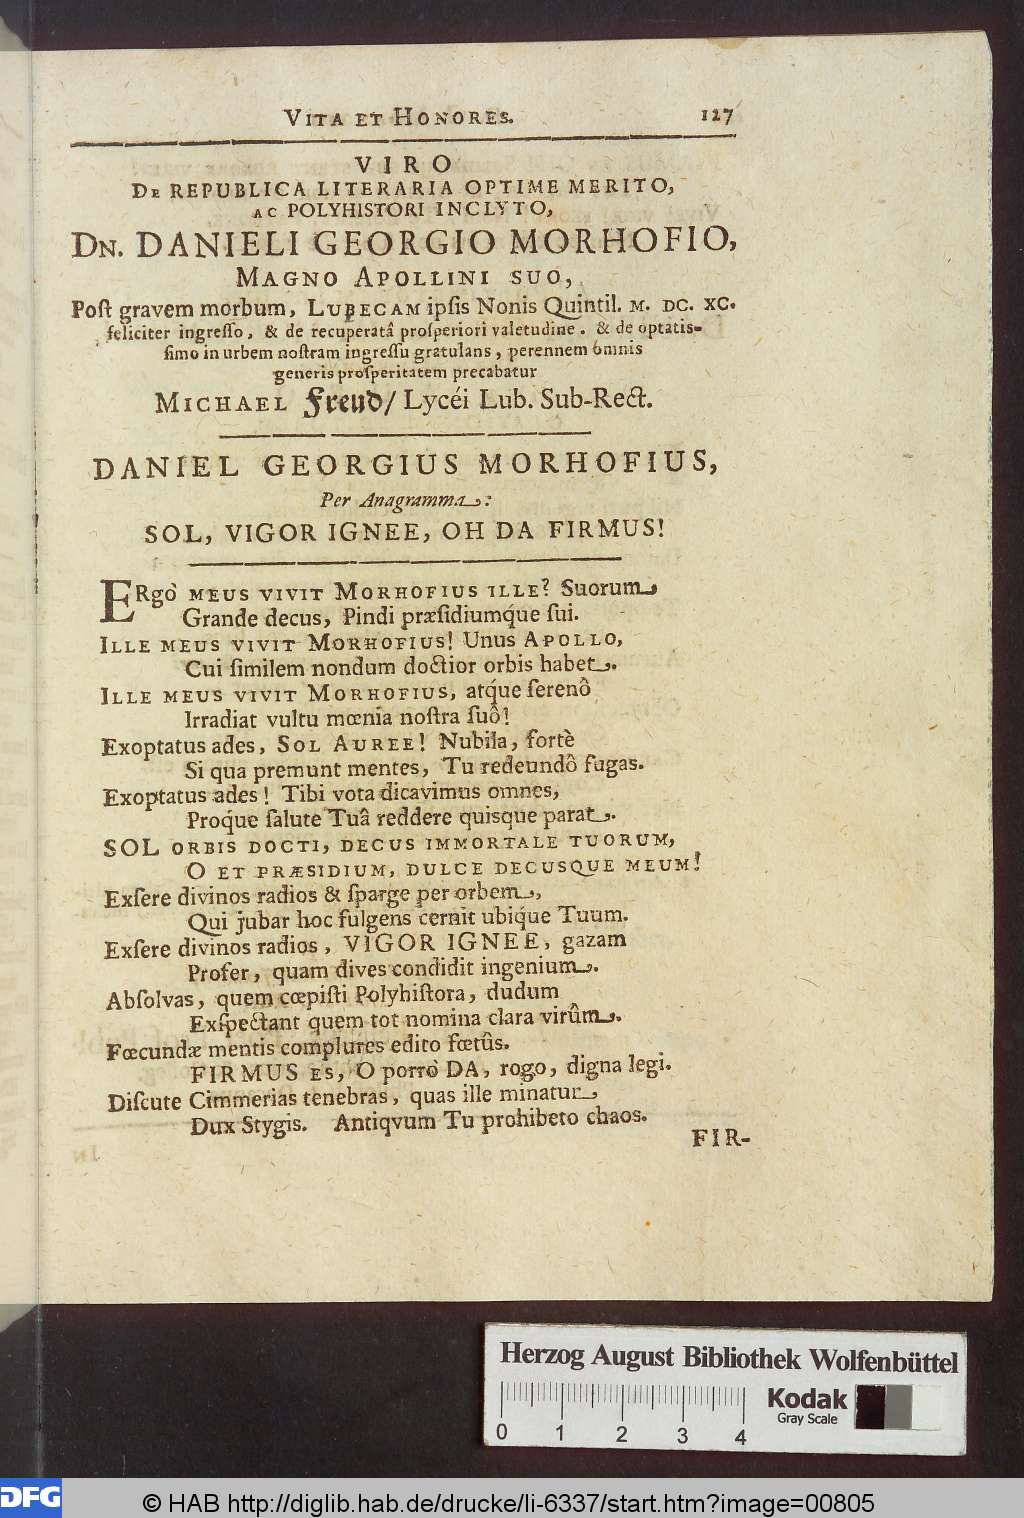 VITA ET HONORES. 127
VIRO
DE REPUBLICA LITERARIA OPTIME MERITO,
AC POLYHISTORI INCLYTO,
DN. DANIELI GEORGIO MORHOFIO,
MAGNO APOLLINI SUO,
Poſt gravem morbum, LUBECAM ipſis Nonis Quintil. M. DC. XC.
feliciter ingreſſo, & de recuperatâ proſperiori valetudine. & de optatis-
ſimo in urbem noſtram ingreſſu gratulans, perennem omnis
generis proſperitatem precabatur
MICHAEL Freud/ Lycéi Lub. Sub-Rect.
DANIEL GEORGIUS MORHOFIUS,
Per Anagramma:
SOL, VIGOR IGNEE, OH DA FIRMUS!
ERgò MEUS VIVIT MORHOFIUS ILLE? Suorum
Grande decus, Pindi præſidiumq́ue ſui.
ILLE MEUS VIVIT MORHOFIUS! Unus APOLLO,
Cui ſimilem nondum doctior orbis habet.
ILLE MEUS VIVIT MORHOFIUS, atq́ue ſerenô
Irradiat vultu mœnia noſtra ſuô!
Exoptatus ades, SOL AUREE! Nubila, fortè
Si qua premunt mentes, Tu redeundô fugas.
Exoptatus ades! Tibi vota dicavimus omnes,
Proq́ue ſalute Tuâ reddere quisque parat.
SOL ORBIS DOCTI, DECUS IMMORTALE TUORUM,
O ET PRÆSIDIUM, DULCE DECUSQUE MEUM!
Exſere divinos radios & ſparge per orbem,
Qui jubar hoc fulgens cernit ubiq́ue Tuum.
Exſere divinos radios, VIGOR IGNEE, gazam
Profer, quam dives condidit ingenium.
Abſolvas, quem cœpiſti Polyhiſtora, dudum
Exſpectant quem tot nomina clara virûm.
Fœcundæ mentis complures edito fœtûs.
FIRMUS ES, O porrò DA, rogo, digna legi.
Diſcute Cimmerias tenebras, quas ille minatur
Dux Stygis. Antiqvum Tu prohibeto chaos.
FIR-
Herzog August Bibliothek Wolfenbüttel
Kodak
Gray Scale
0 1 2 3 4
DFG © HAB http://diglib.hab.de/drucke/li-6337/start.htm?image=00805